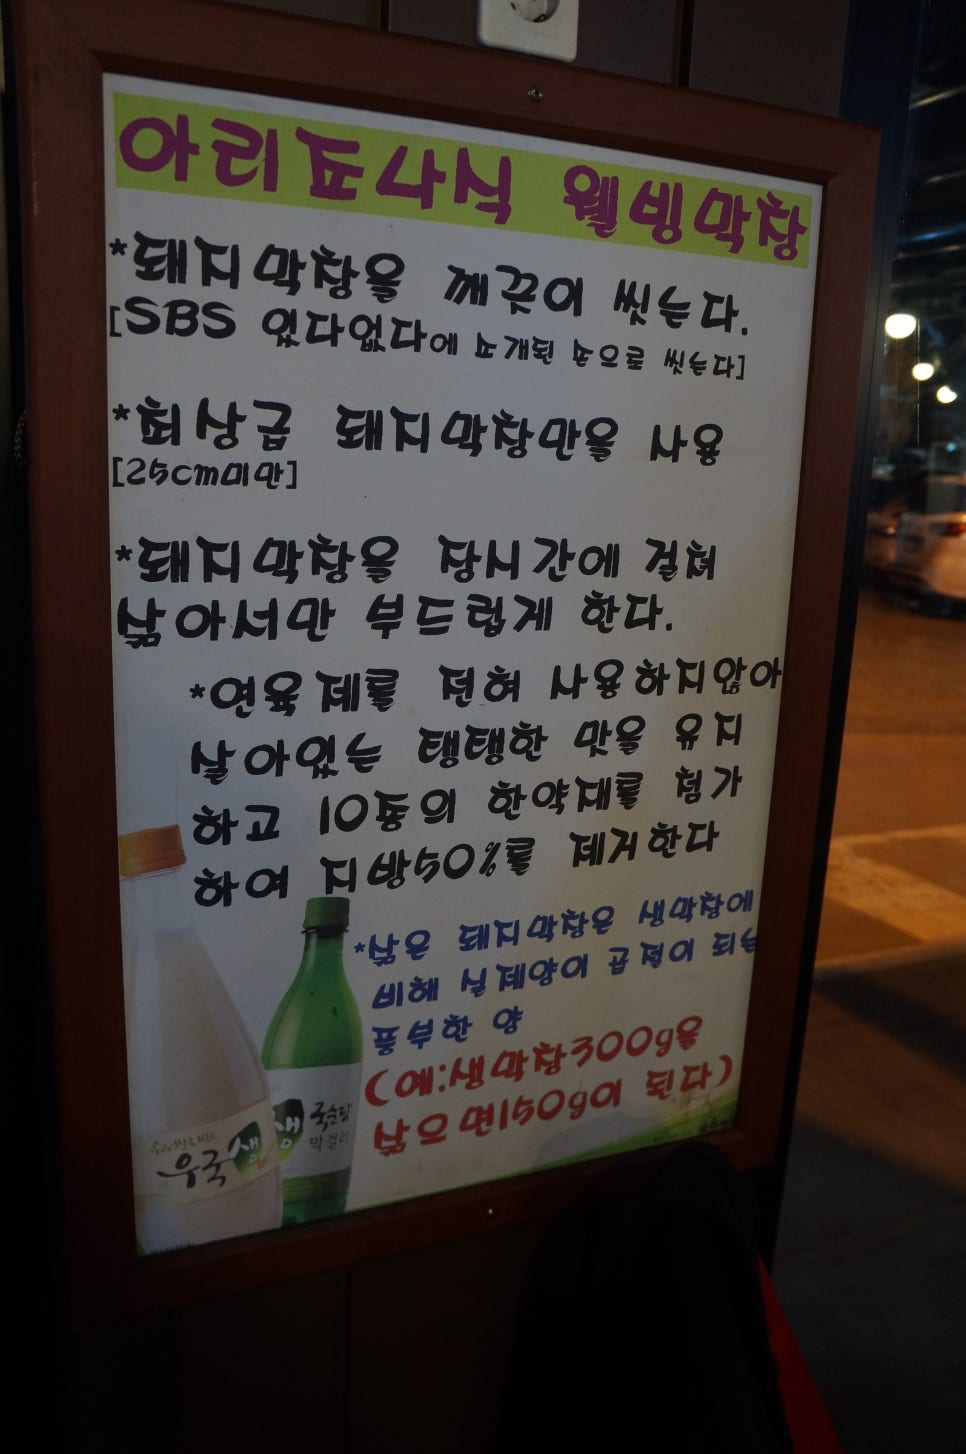 아리조나식 웰빙막창
*돼지막창을 깨끗이 씻는다.
[SBS 있다없다에 소개된 손으로 씻는다]
*최상급 돼지막창만을 사용
[25cm미만]
*돼지막창을 장시간에 걸쳐
삶아서만 부드럽게 한다.
*연육제를 전혀 사용하지않아
살아있는 탱탱한 맛을 유지
하고 10종의 한약재를 첨가
하여 지방50%를 제거한다
*삶은 돼지막창은 생막창에
비해 실제양이 곱절이 되는
풍부한 양
(예:생막창300g을
삶으면150g이 된다)
우리쌀로 빚은
우국생
생 국순당
막걸리